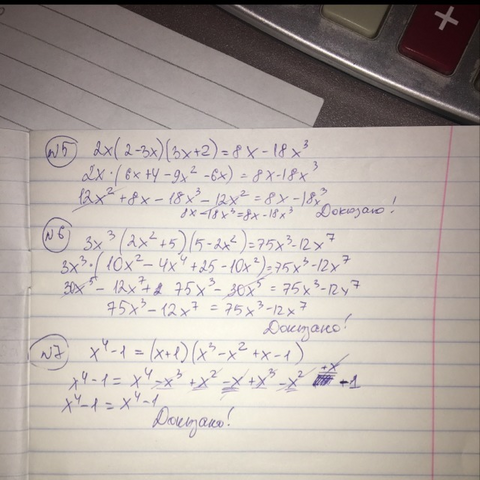 +
№5 2x(2-3x)(3x+2)=8x-18x³
2x·(6x+4-9x²-6x)=8x-18x³
12x²+8x-18x³-12x²=8x-18x³
8x-18x³=8x-18x³ Доказано!
№6 3x³(2x²+5)(5-2x²)=75x³-12x⁷
3x³·(10x²-4x⁴+25-10x²)=75x³-12x⁷
30x⁵-12x⁷+ 75x³-30x⁵=75x³-12x⁷
75x³-12x⁷=75x³-12x⁷
Доказано!
№7 x⁴-1=(x+1)(x³-x²+x-1)
x⁴-1=x⁴-x³+x²-x+x³-x²+x-1
x⁴-1=x⁴-1
Доказано!